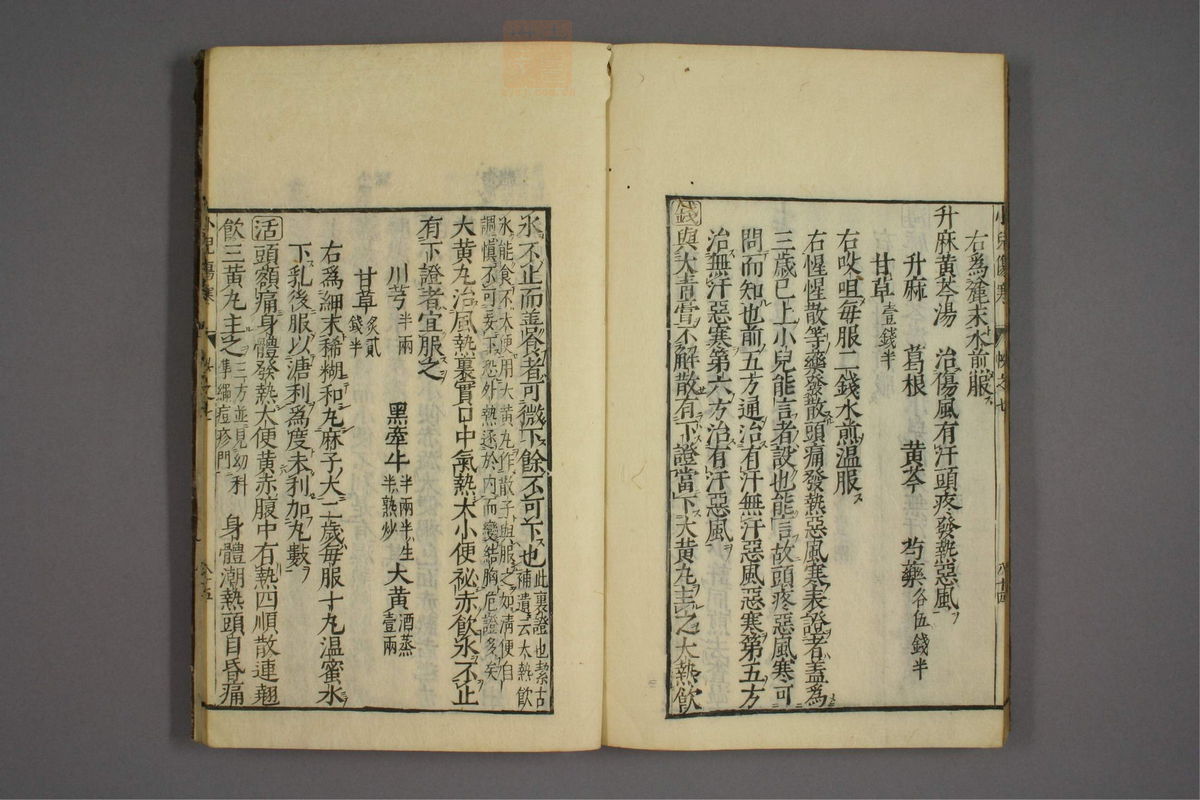 右爲麄末水煎服
升麻黃芩湯　治傷風有汗頭疼發熱惡風
升麻　葛根　黃芩　芍藥各伍錢半
甘草壹錢半
右㕮咀每服二錢水煎溫服
右惺惺散等藥發散頭痛發熱惡風寒表證者蓋為
三歲已上小兒能言者設也能言故頭疼惡風寒可
問而知也前五方通治有汗無汗惡風惡寒第五方
治無汗惡寒第六方治有汗惡風
錢與大青膏不解散有下證當下大黃丸主之大熱飲
水不止而善食者可微下餘不可下也此裏證也絜古補遺云大熱飲
水能食不大便用大黃丸作散子與服之如淸便自
調愼不可妄下恐外熱逐於內而變結胸危證多矣
大黃丸治風熱裏實口中氣熱大小便祕赤飲水不止
有下證者宜服之
川芎半兩　黑牽牛半兩半生半熟炒　大黃酒蒸壹兩
甘草炙貳錢半
右爲細末稀糊和丸麻子大二歲每服十丸溫蜜水
下乳後服以溏利爲度未利加丸數
活頭額痛身體發熱大便黃赤腹中有熱四順散連翹
飲三黃丸主之三方並見幼科準繩痘疹門　身體潮熱頭目昏痛